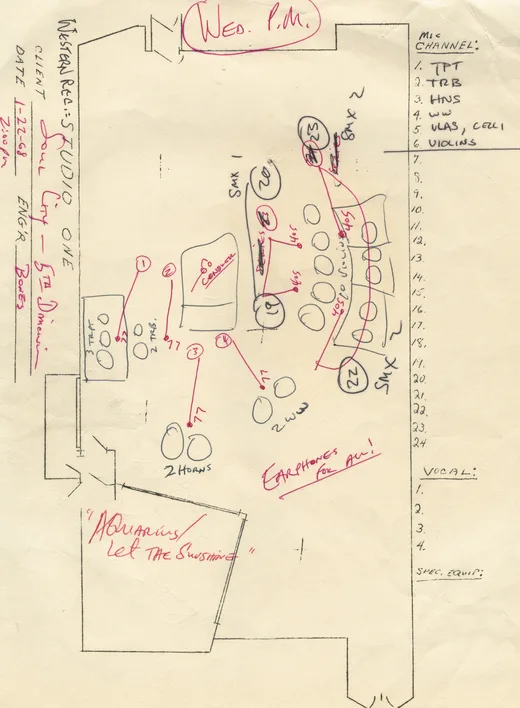 WED. P.M.
WESTERN REC. = STUDIO ONE
CLIENT Soul City - 5TH Dimension
DATE 1-22-68 ENG'R BONES
2:00 pm
MIC
CHANNEL:
1. TPT
2. TRB
3. HNS
4. WW
5. VLAS, CELLI
6. VIOLINS
7.
8.
9.
10.
11.
12.
13.
14.
15.
16.
17.
18.
19.
20.
21.
22.
23.
24
VOCAL:
1.
2.
3.
4.
SPEC. EQUIP:
SMX 2
23
SMX 1
20
405
405
405
405
10 VIOLINS
19
22
SMX 2
1
2
CONDUCTOR
3 TRPT
77
2 TRB.
77
3
4
77
77
2 WW
2 HORNS
EARPHONES
FOR ALL!
"AQUARIUS/
Let THE SUNSHINE"